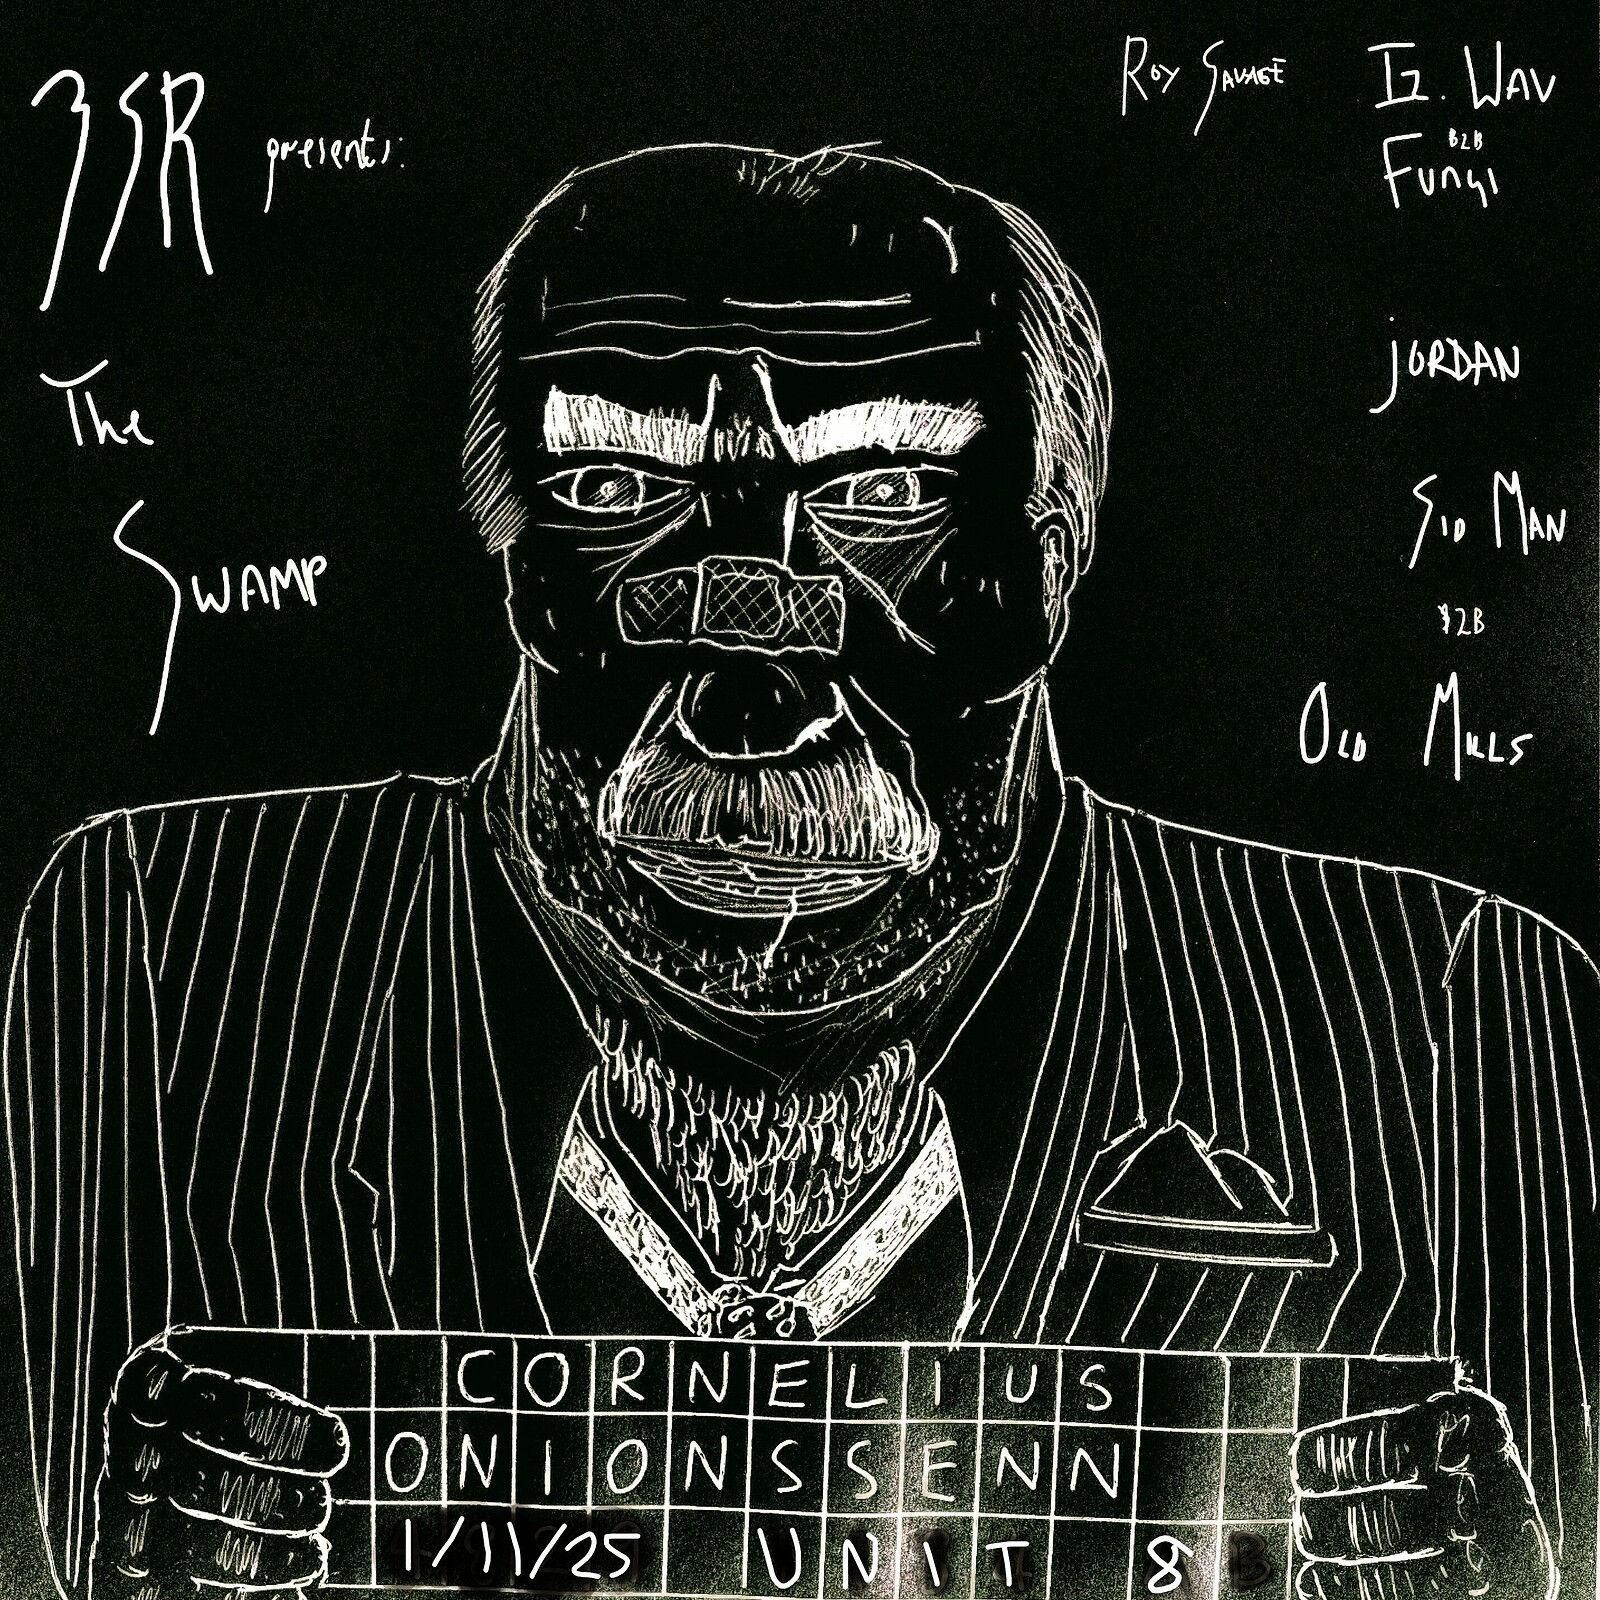 3SR presents:
The
Swamp
Roy Savage
IZ. Wav
B2B
Fungi
jORDAN
Sid Man
B2B
Old Mills
CORNELIUS
ONIONSSENN
1/11/25 UNIT 8